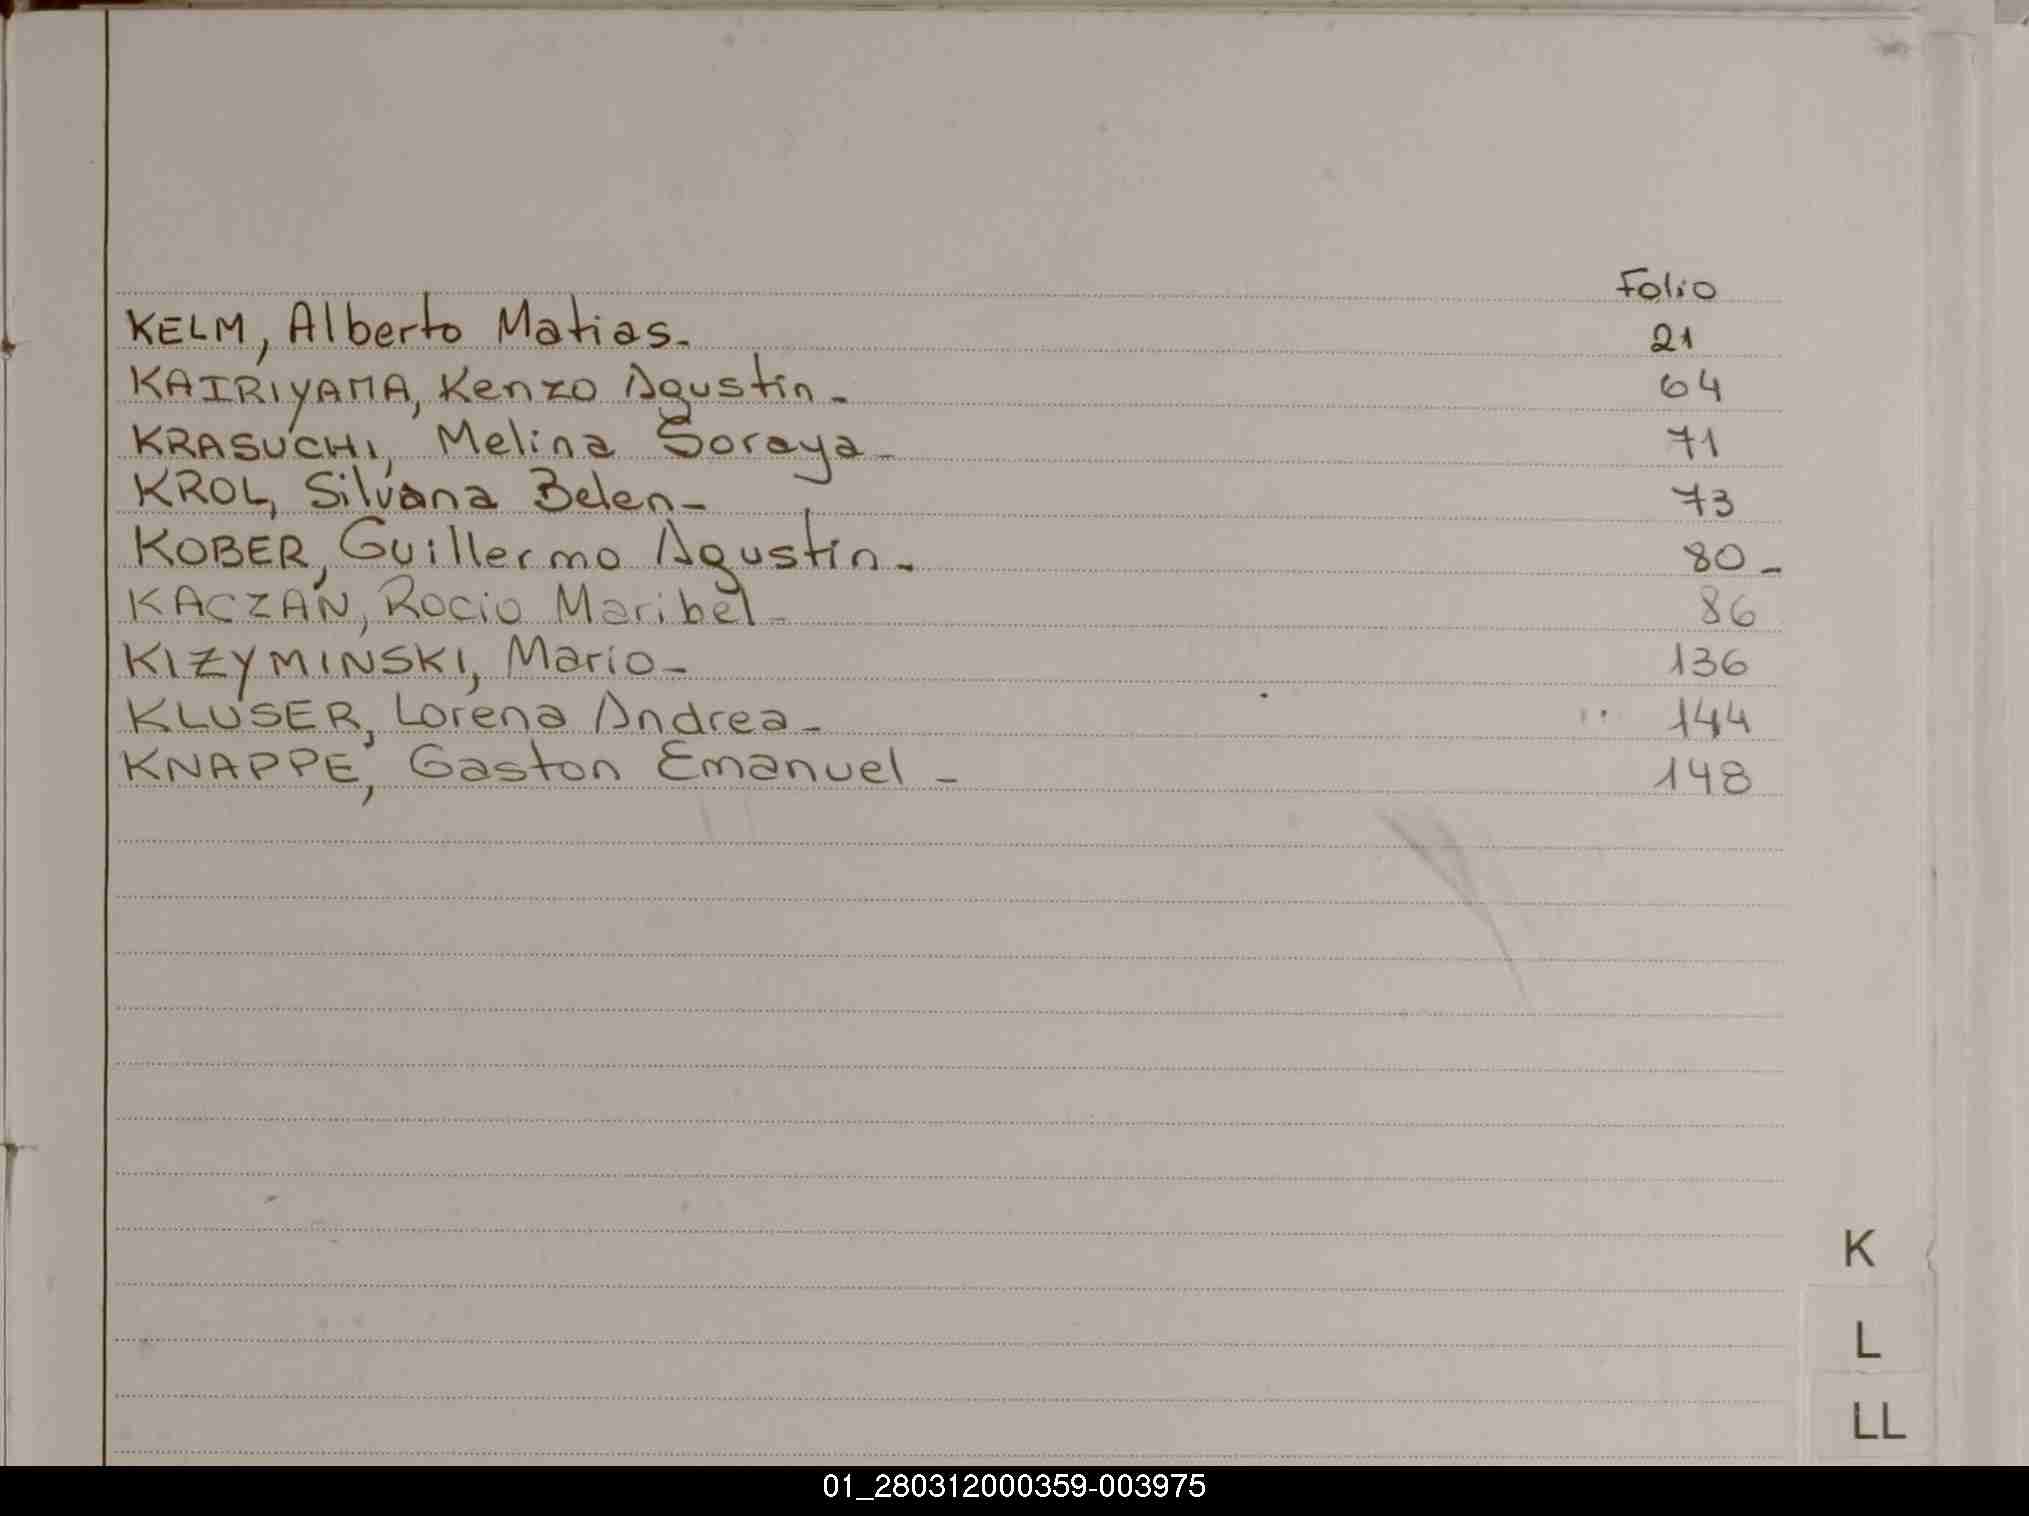 Folio
KELM, Alberto Matias. 21
KAIRIYAMA, Kenzo Agustin - 64
KRASUCHI, Melina Soraya - 71
KROL, Silvana Belen - 73
KOBER, Guillermo Agustin - 80 -
KACZAN, Rocio Maribel - 86
KIZYMINSKI, Mario - 136
KLUSER, Lorena Andrea - 144
KNAPPE, Gaston Emanuel - 148
K
L
LL
01_280312000359-003975